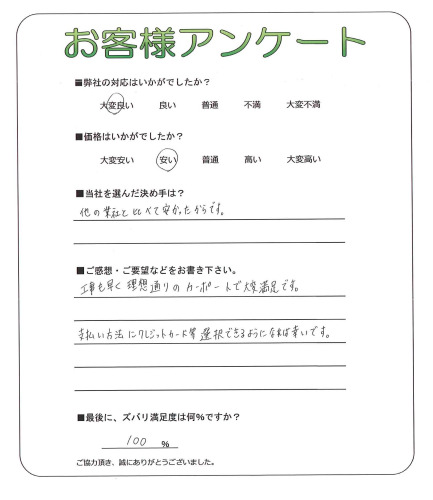 お客様アンケート
■弊社の対応はいかがでしたか？
大変良い 良い 普通 不満 大変不満
■価格はいかがでしたか？
大変安い 安い 普通 高い 大変高い
■当社を選んだ決め手は？
他の業社と比べて安かったからです。
■ご感想・ご要望などをお書き下さい。
工事も早く理想通りのカーポートで大変満足です。
支払い方法にクレジットカード等選択できるようになれば幸いです。
■最後に、ズバリ満足度は何％ですか？
100 ％
ご協力頂き、誠にありがとうございました。